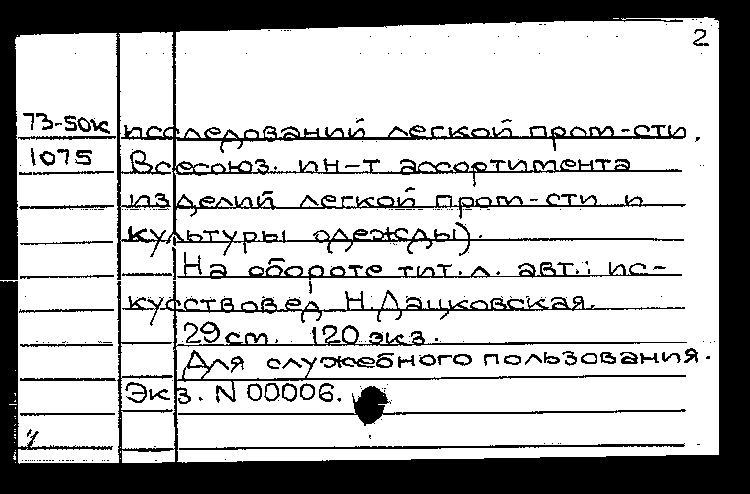 2
73-50к исследований легкой пром-сти,
1075 Всесоюз. ин-т ассортимента
изделий легкой пром-сти и
культуры одежды).
На обороте тит. л. авт.: ис-
кусствовед Н. Дацковская.
29 см. 120 экз.
Для служебного пользования.
Экз. N 00006.